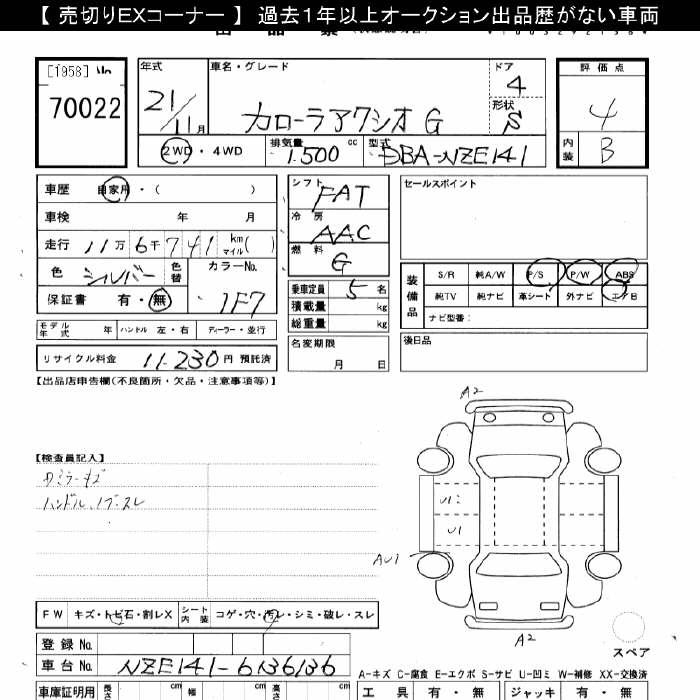 【 売切りEXコーナー 】 過去1年以上オークション出品歴がない車両
[1958] No
70022
年式
21/11月
車名・グレード
カローラアクシオ G
ドア
4
形状
S
評価点
4
内装
B
2WD・4WD
排気量
1.500 cc
型式
DBA-NZE141
車歴 自家用・( )
車検 年 月
走行 11万6千741 km マイル( )
色 シルバー 色替
カラーNo.
1F7
保証書 有・無
モデル年式 年 ハンドル 左・右 ディーラー・並行
リサイクル料金 11.230円 預託済
シフト
FAT
冷房
AAC
燃料
G
乗車定員 5 名
積載量 kg
総重量 kg
名変期限
月 日
セールスポイント
装備品
S/R 純A/W P/S P/W ABS
純TV 純ナビ 革シート 外ナビ エアB
ナビ型番:
後日品
【出品店申告欄(不良箇所・欠品・注意事項等)】
【検査員記入】
ハンドル、ノブ スレ
A2
U1
AU1
A2
スペア
FW キズ・トビ石・割レX シート内装 コゲ・穴・汚レ・シミ・破レ・スレ
登録 No.
車台 No. NZE141-6136136
A-キズ C-腐食 E-エクボ S-サビ U-凹ミ W-補修 XX-交換済
車庫証明用 長さ cm 幅 cm 高さ cm
工具 有・無 ジャッキ 有・無